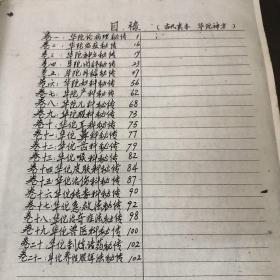 目 录 (古代真本 华佗神方)
卷一：华佗论病理秘传 1
卷二：华佗临症秘传 16
卷三：华佗神方秘传 19
卷四：华佗内科秘传 23
卷五：华佗外科秘传 47
卷六：华佗妇科秘传 56
卷七：华佗产科秘传 62
卷八：华佗儿科秘传 68
卷九：华佗眼科秘传 73
卷十：华佗耳科秘传 75
卷十一：华佗鼻科秘传 77
卷十二：华佗齿科秘传 79
卷十三：华佗喉科秘传 82
卷十四：华佗皮肤科秘传 84
卷十五：华佗伤科秘传 87
卷十六：华佗结毒科秘传 90
卷十七：华佗急救法秘传 92
卷十八：华佗治奇症法秘传 98
卷十九：华佗兽医科秘传 100
卷二十：华佗制炼诸药秘传 102
卷二十一：华佗养性服饵法秘传 102